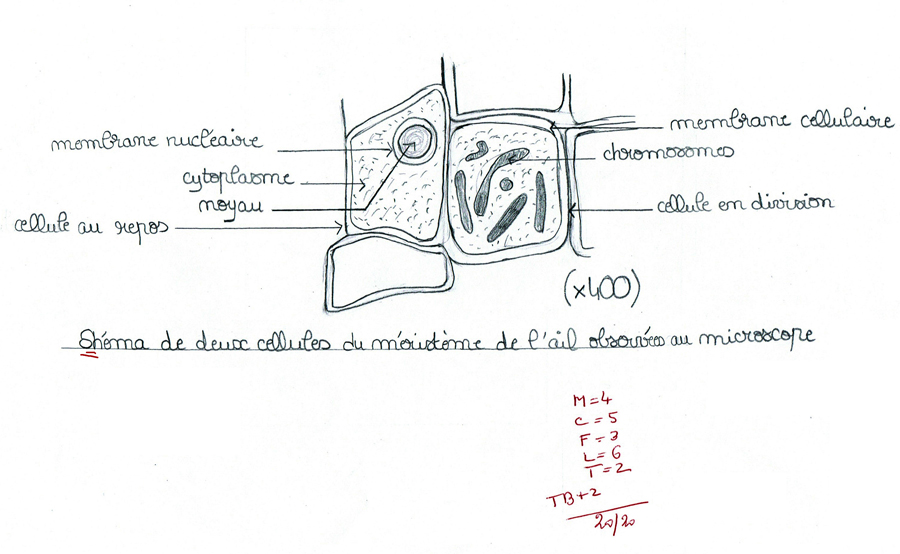 membrane nucléaire
cytoplasme
noyau
cellule au repos
membrane cellulaire
chromosomes
cellule en division
(×400)
Shéma de deux cellules du méristème de l'ail observées au microscope
M=4
C=5
F=3
L=6
T=2
TB+2
20/20